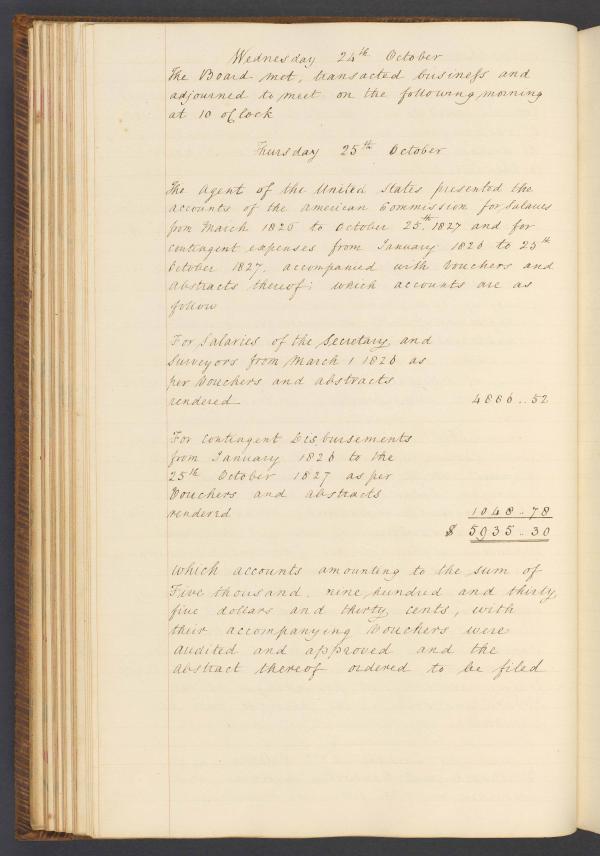 Wednesday 24th October
The Board met, transacted business and
adjourned to meet on the following morning
at 10 oClock
Thursday 25th October
The Agent of the United States presented the
accounts of the American Commission for Salaries
from March 1826 to October 25th 1827 and for
contingent expenses from January 1826 to 25th
October 1827. accompanied with Vouchers and
abstracts thereof; which accounts are as
follow
For Salaries of the Secretary and
Surveyors from March 1 1826 as
per Vouchers and abstracts
rendered 4886..52
For contingent Disbursements
from January 1826 to the
25th October 1827 as per
Vouchers and abstracts
rendered 1048..78
$ 5935..30
Which accounts amounting to the sum of
Five thousand. nine hundred and thirty
five dollars and thirty cents, with
their accompanying Vouchers were
audited and approved and the
abstract thereof ordered to be filed